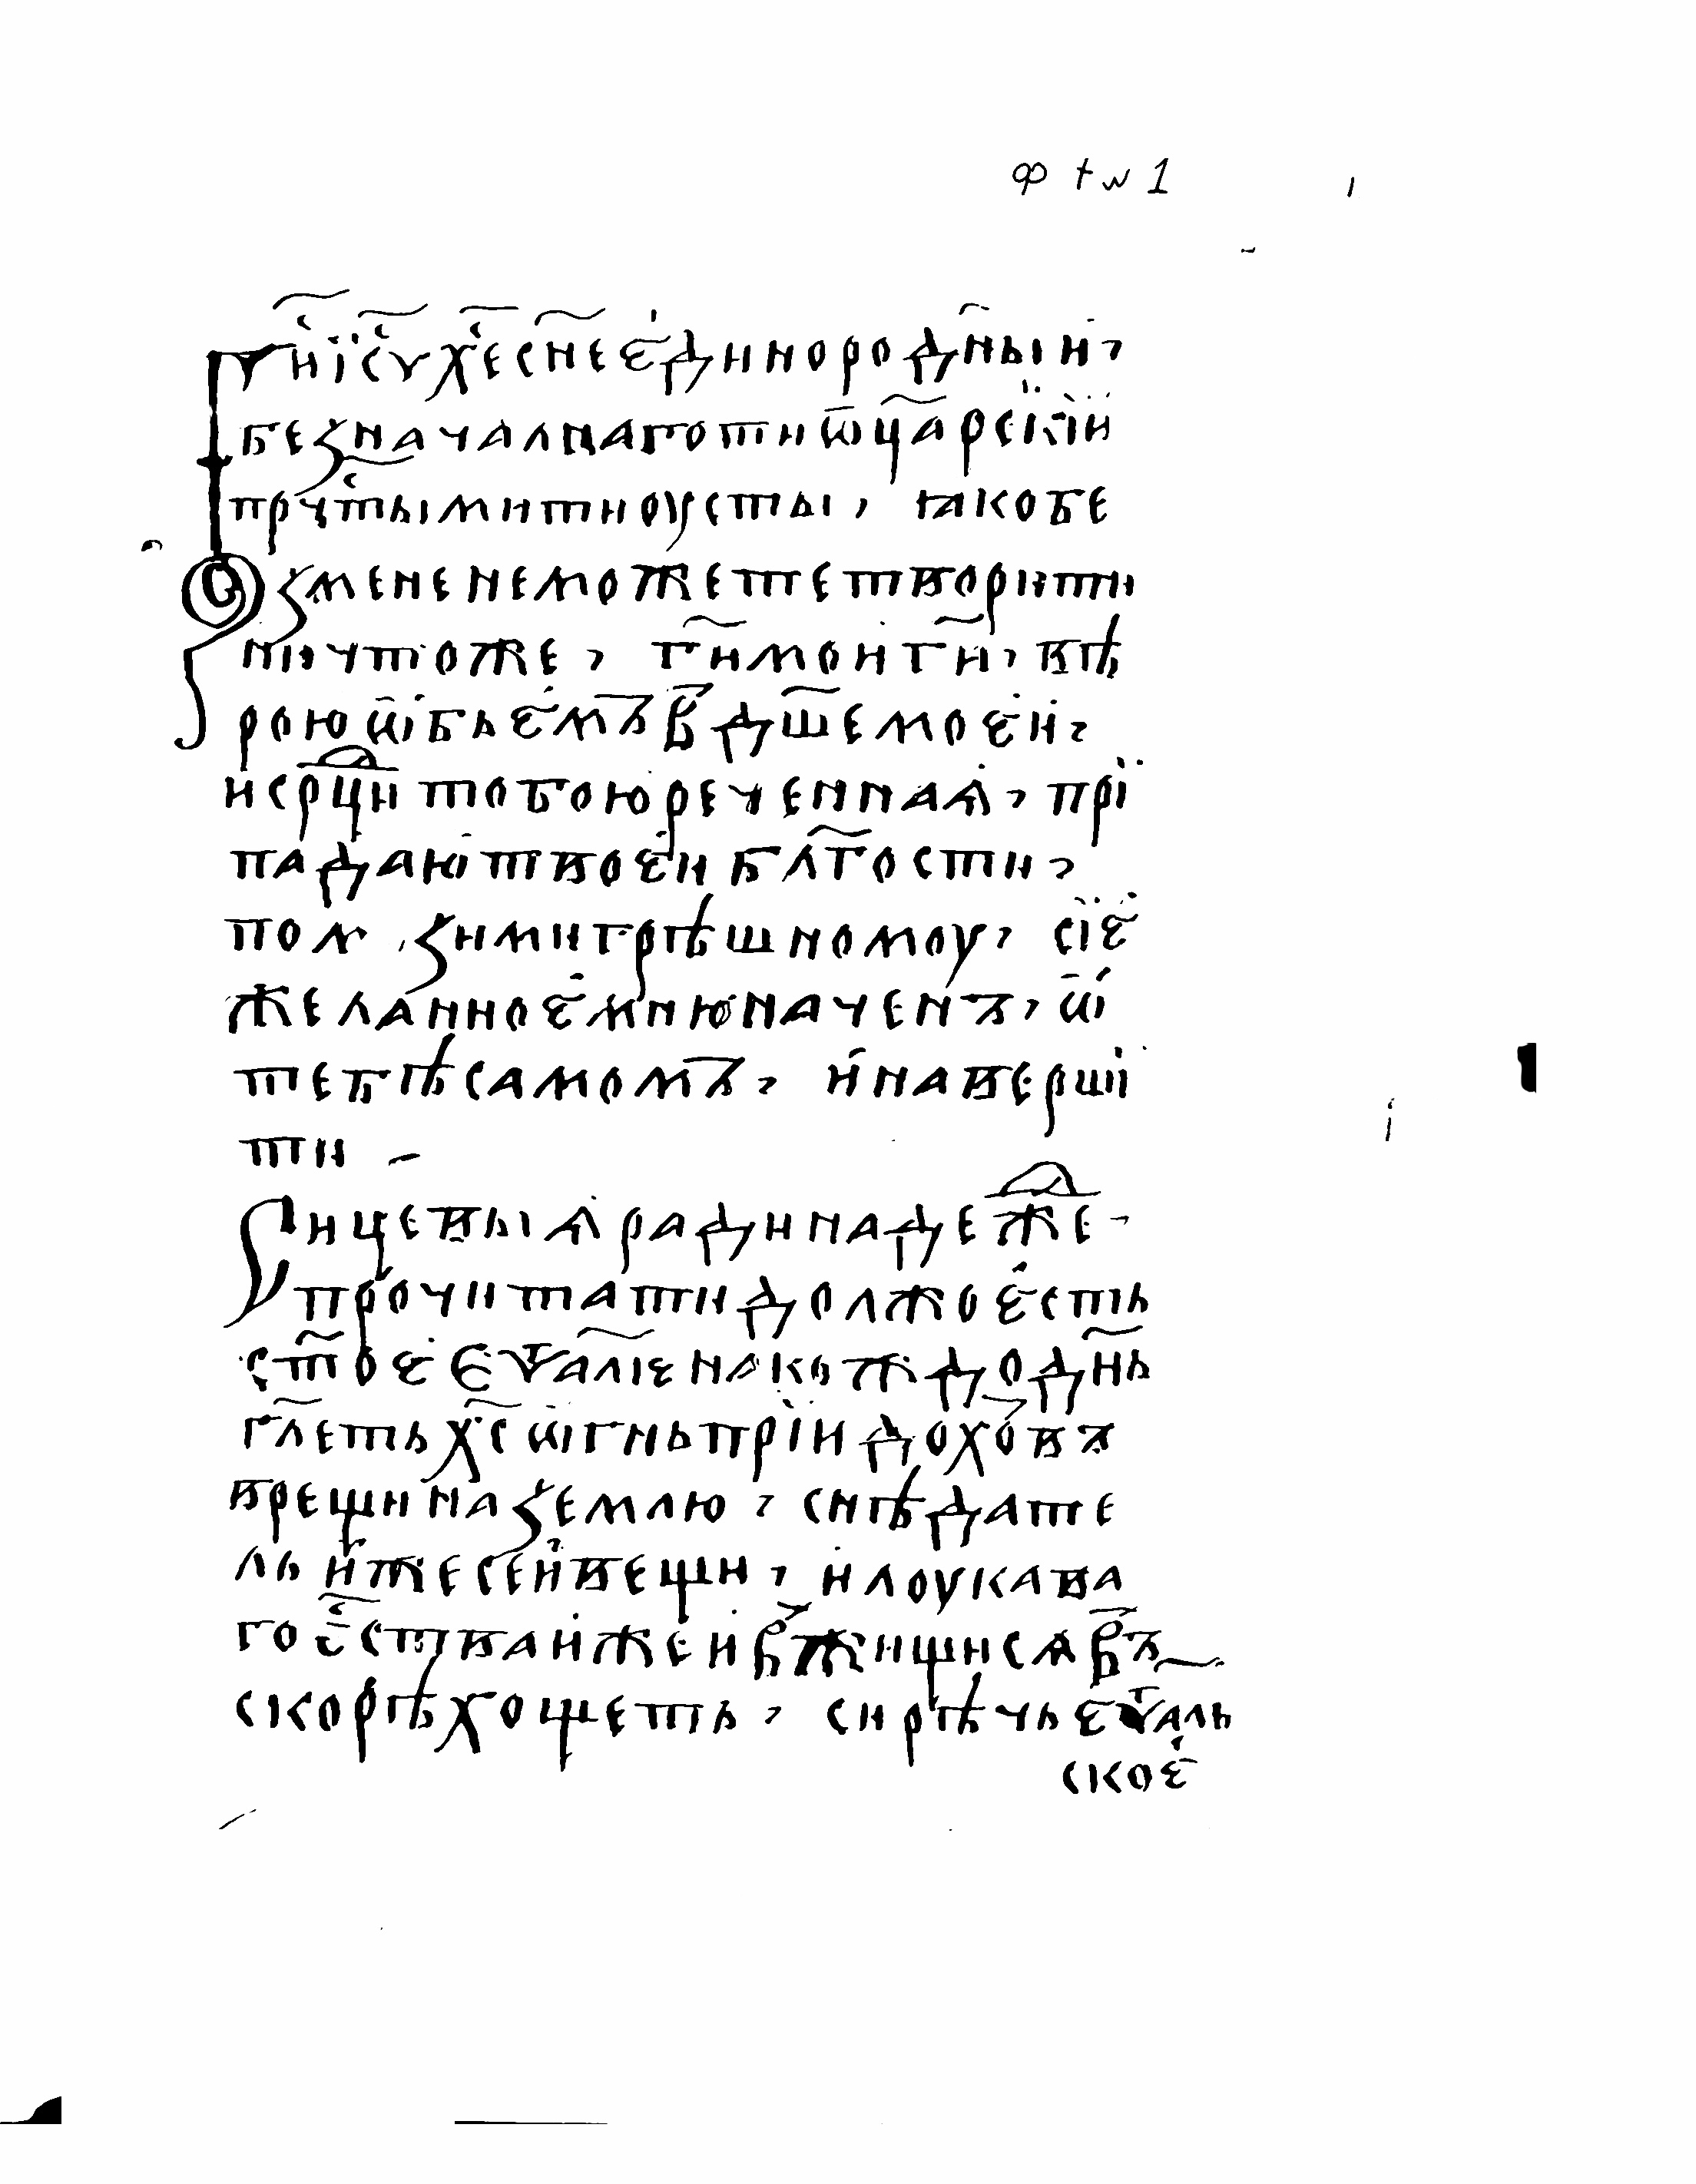 ф t w 1
Ги҃ і҆с҃у х҃е сн҃е є҆динородн҃ыи,
безначалнаготи ѿц҃а рекїи
прчⷭ҇тымити оусты, ꙗко бе
з мене неможете творити
ничтоже, ги҃ мои ги҃, вѣ
рою ѡ҆бьемъ в дш҃е моеи,
и ср҃ци тобою реченнаѧ, прї
падаю твоеи блг҃ости,
помѕи ми грѣшномоу, сїе
желанное мною наченъ, ѡ҆
тебѣ самомъ, и҆ наверши
ти
Сицевыѧ ради надеже
прочитати должо є҆сть
ст҃ое єѵⷢ҇алїе на кождо дн҃ь
гл҃еть хс҃ ѡ҆гнь прїидохо́въ
врещи на землю, снѣдате
ль и҆же сеи вещи, и лоукава
го є҆ства и҆же и вжищисѧ въ
скорѣ хощеть, сирѣчь єѵⷢ҇аль
ское